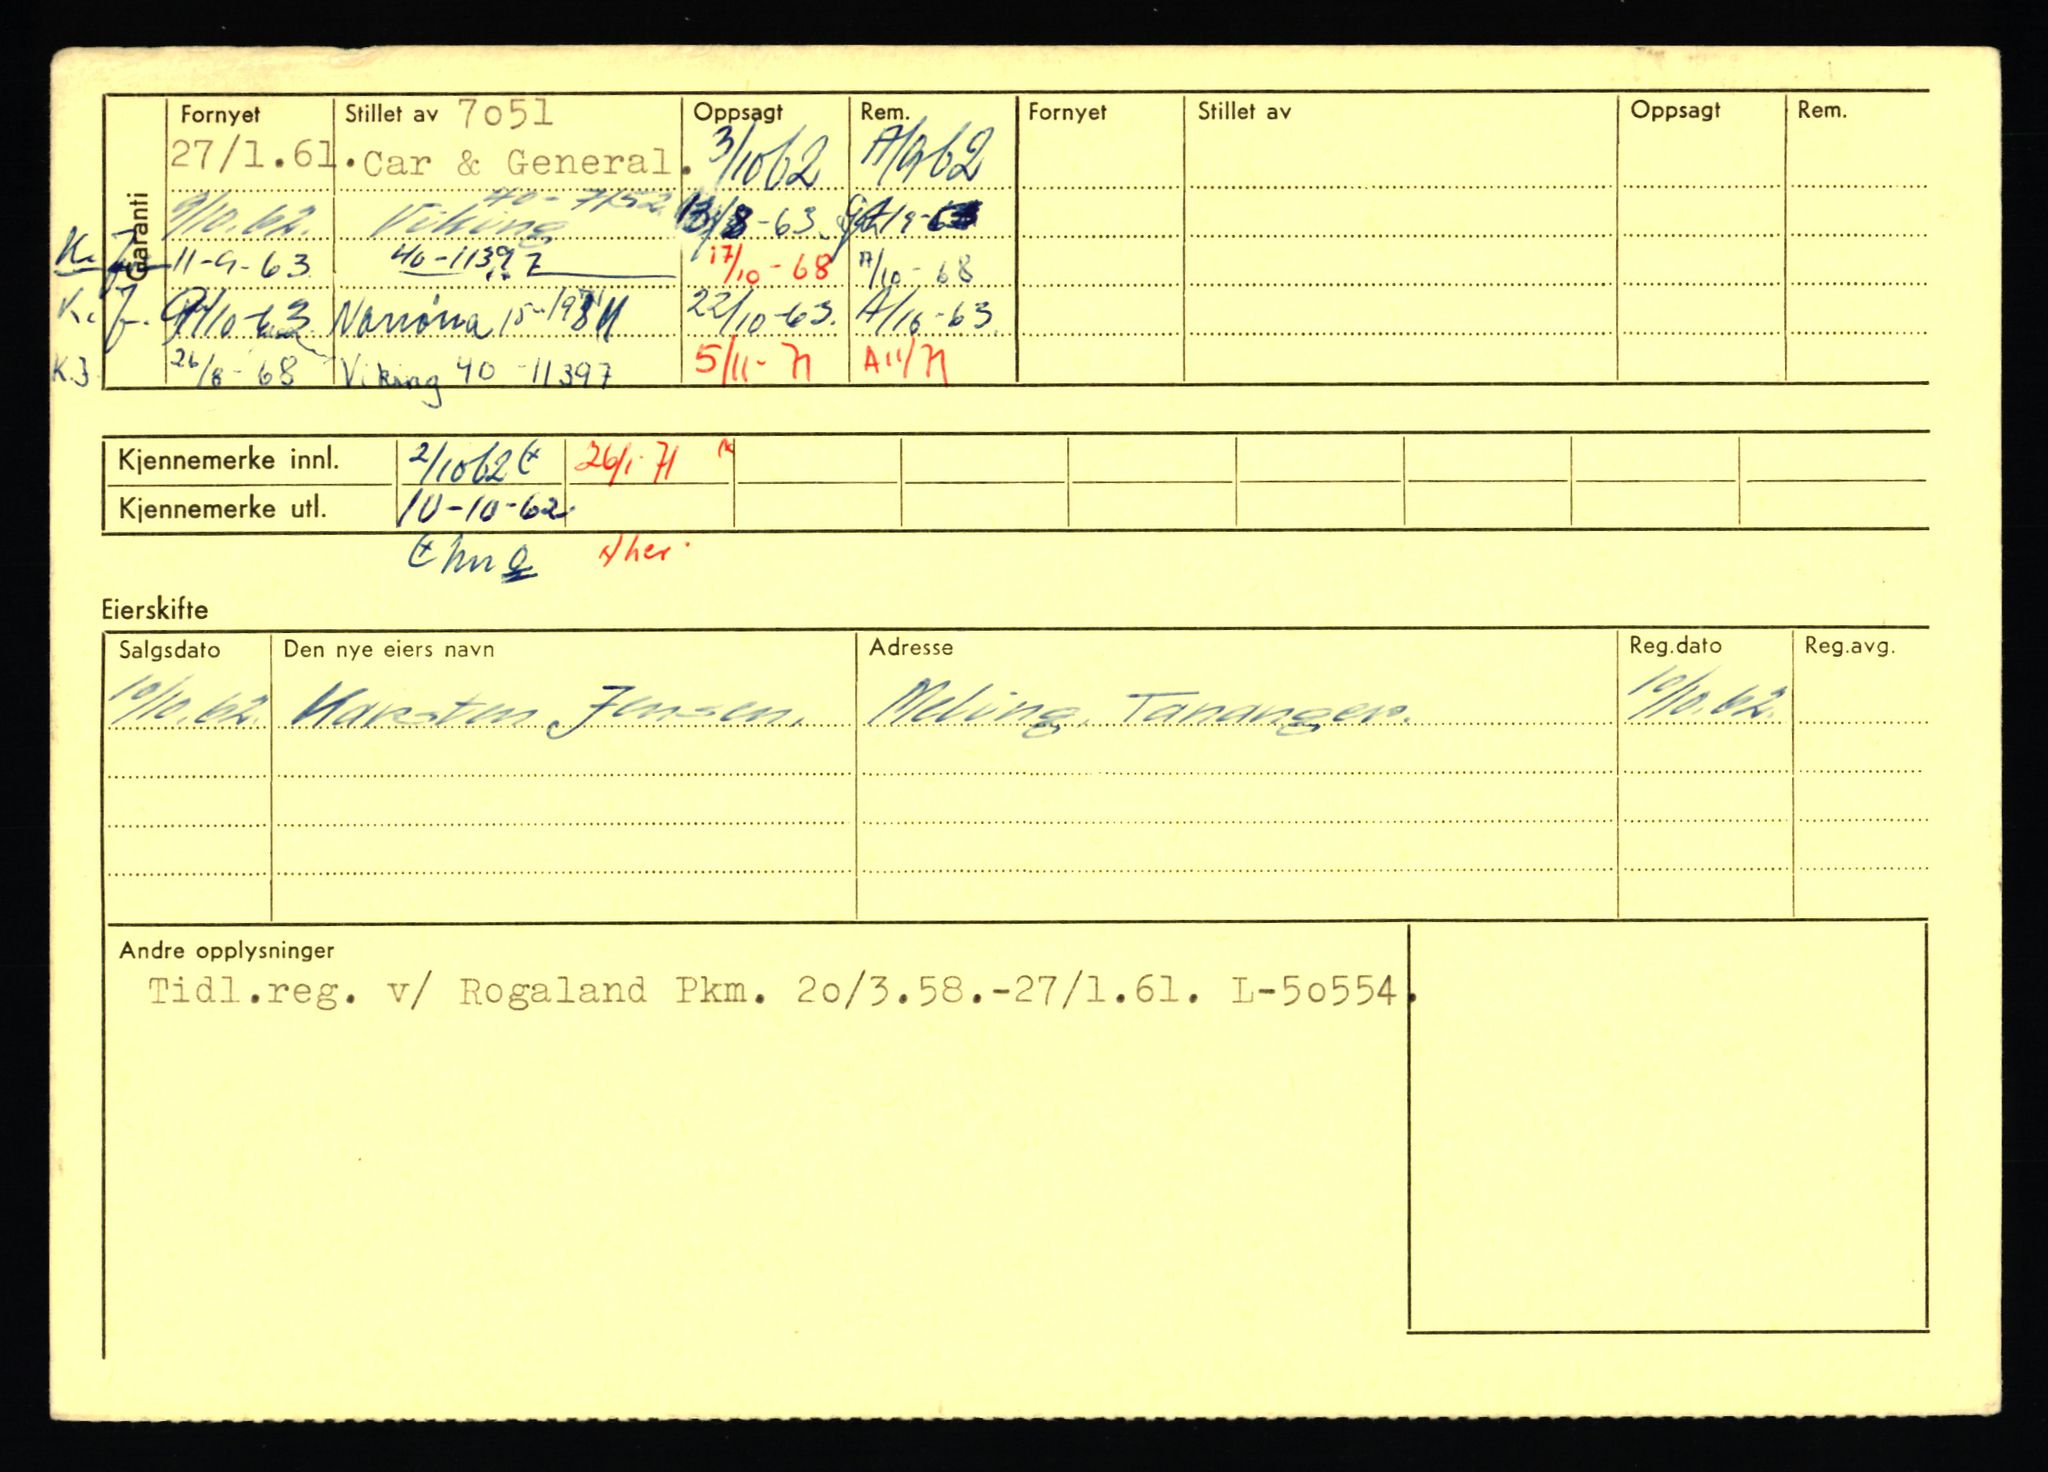 Garanti
Fornyet Stillet av 7o51 Oppsagt Rem. Fornyet Stillet av Oppsagt Rem.
27/1.61. Car & General. 3/10 62 A/9 62
9/10.62. Viking 40-7152 13/8-63
K. J. 11-9-63 40-11397 17/10-68 17/10-68
K. J. 10-63 Norrøna 22/10-63. A/10-63.
K.J. 26/8-68 Viking 40-11397 5/11-71 A11/71
Kjennemerke innl. 2/10 62 26/1-71
Kjennemerke utl. 10-10-62.
her
Eierskifte
Salgsdato Den nye eiers navn Adresse Reg.dato Reg.avg.
10/10.62. Karsten Jensen. Meling, Tananger. 10/10.62.
Andre opplysninger
Tidl.reg. v/ Rogaland Pkm. 2o/3.58.-27/1.61. L-5o554.